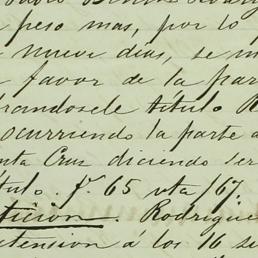 peso mas, por lo
nueve dias, se m
favor de la par
brandosele titulo R
ocurriendo la parte a
nta Cruz diciendo ser
tulo. f. 65 vta /67.
ticion. Rodrigue
etension á los 16 se